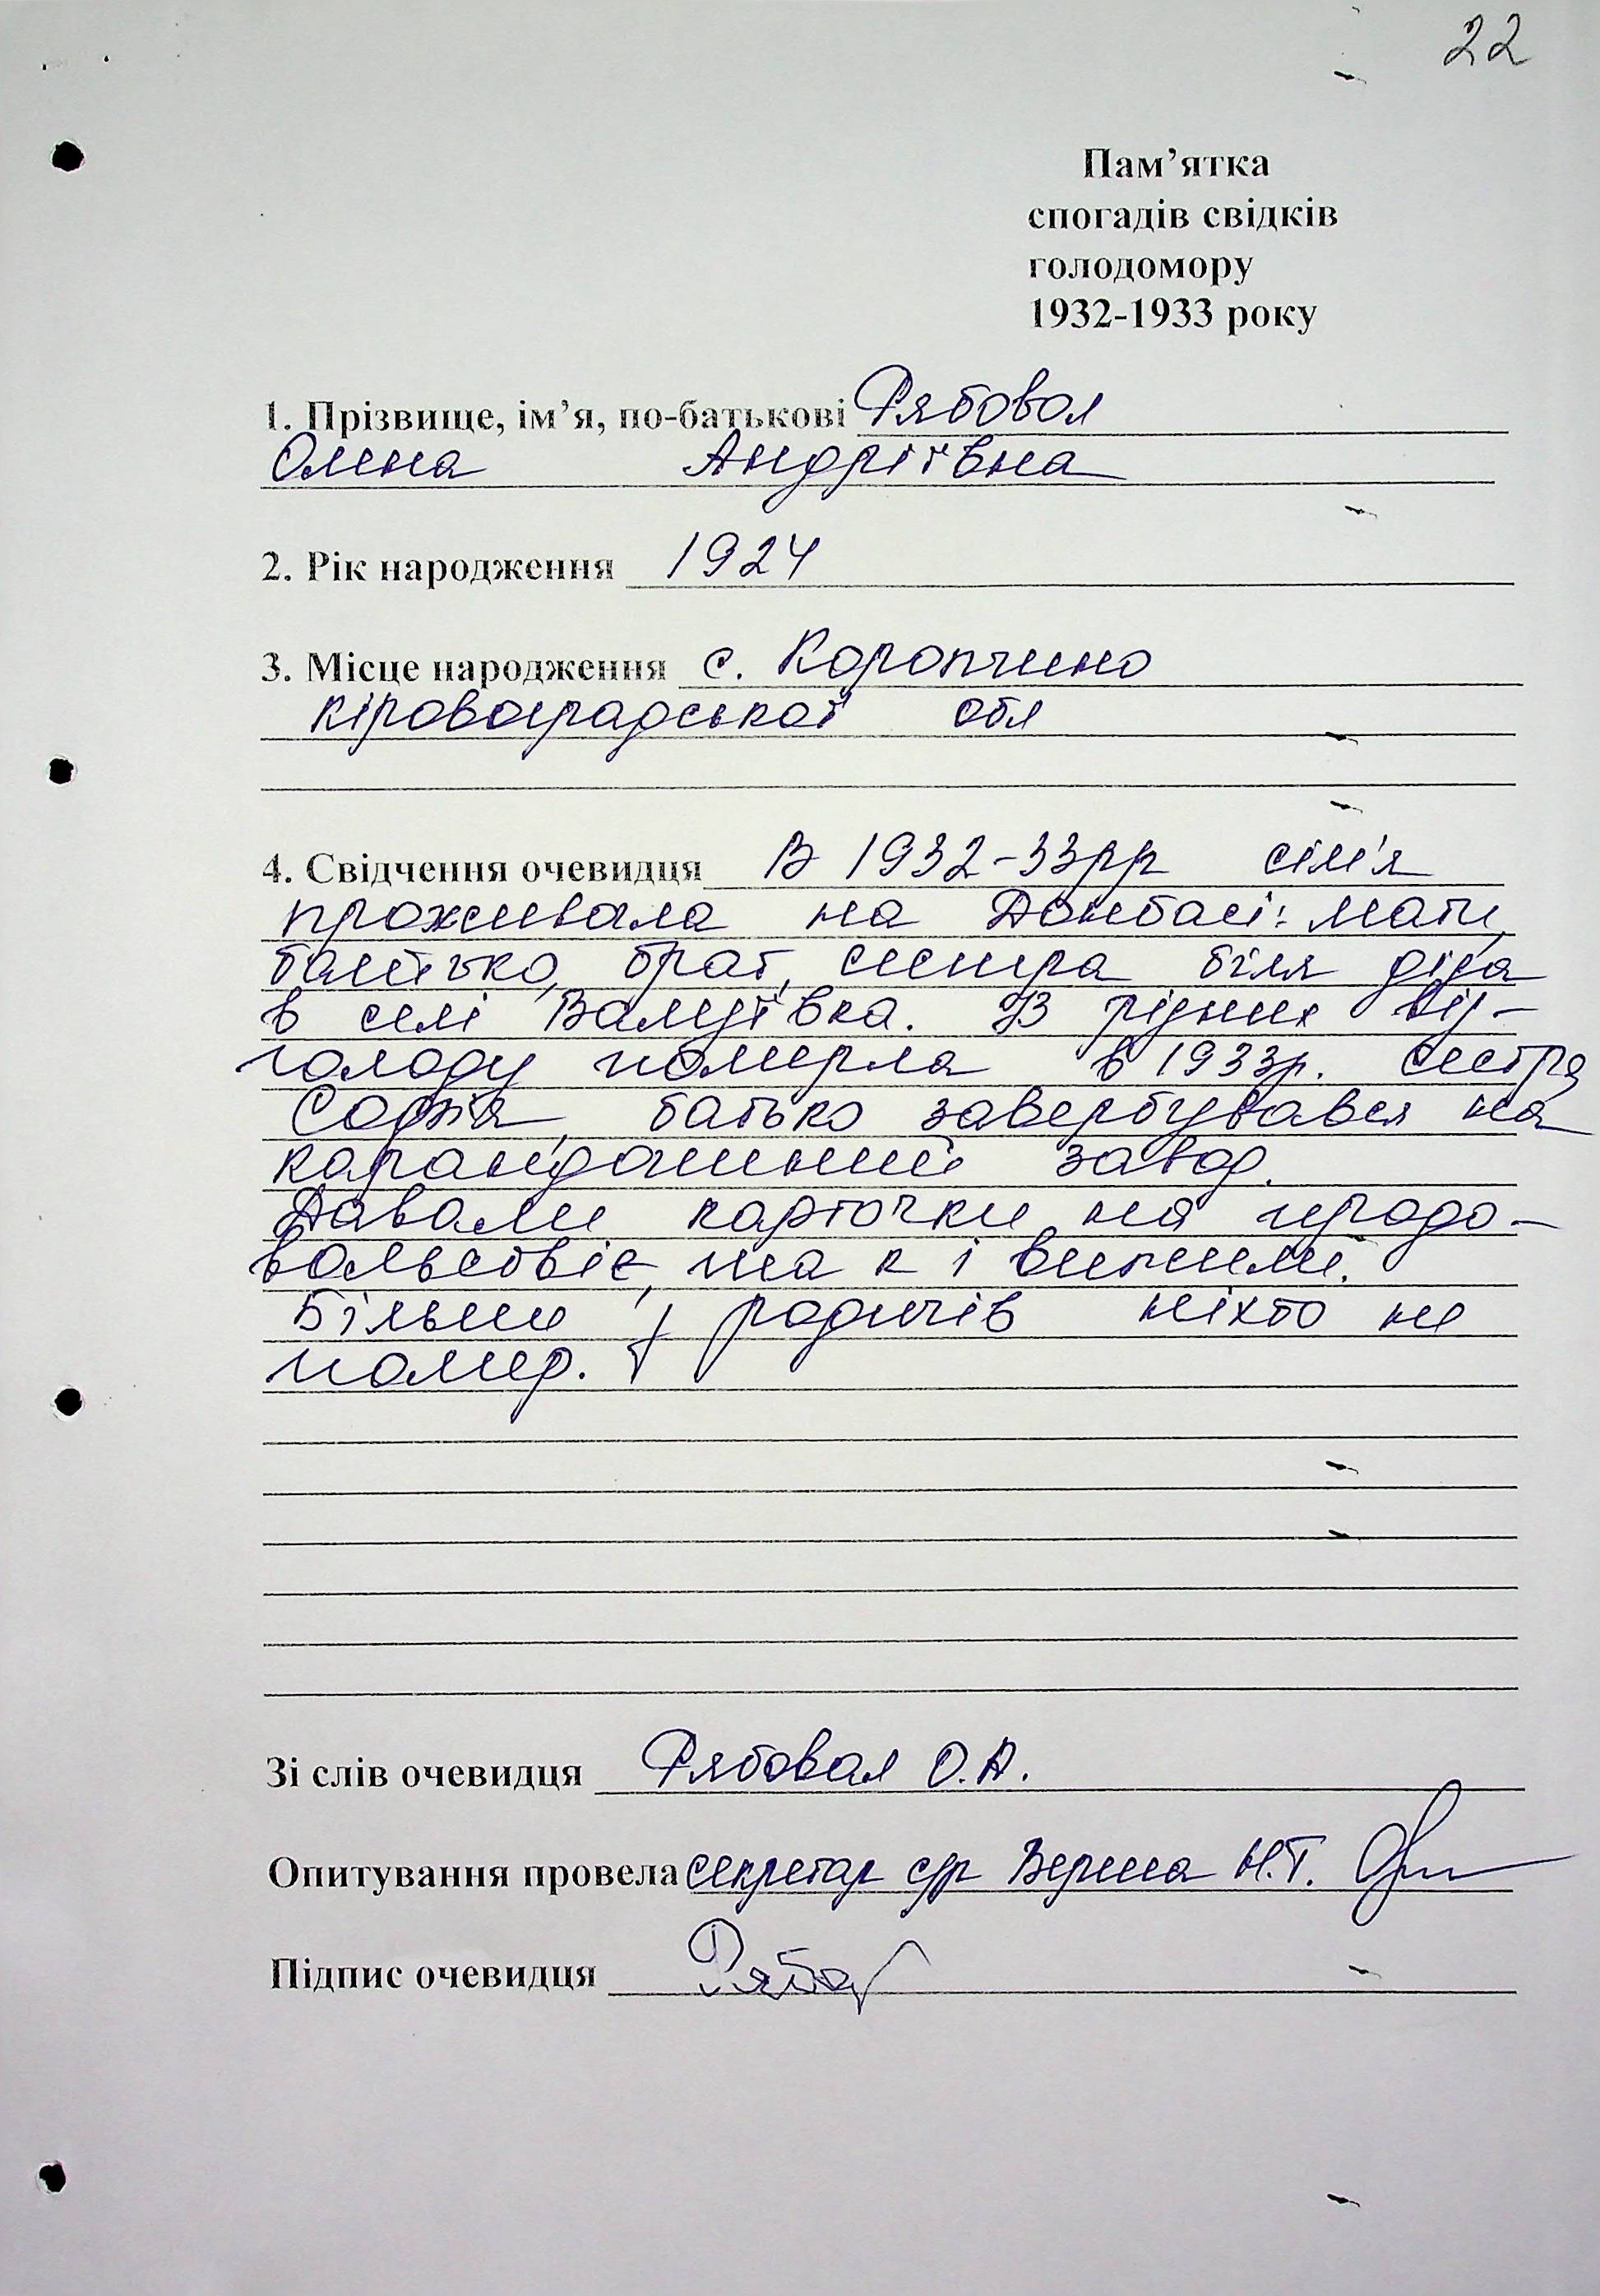 22
Пам’ятка
спогадів свідків
голодомору
1932-1933 року
1. Прізвище, ім’я, по-батькові Рябовол
Олена Андріївна
2. Рік народження 1924
3. Місце народження с. Коропчино
кіровоградської обл
4. Свідчення очевидця В 1932-33рр сім'я
проживала на Донбасі: мати,
батько, брат, сестра біля діда
в селі. Із рідних від-
голоду померла в 1933р. сестра
Софія, батько завербувався на
карандашний завод.
Давали карточки на продо-
вольствіє, так і вижили.
Більше у родичів ніхто не
помер.
Зі слів очевидця Рябовол О.А.
Опитування провела секретар с/р Н.Т.
Підпис очевидця Рябов